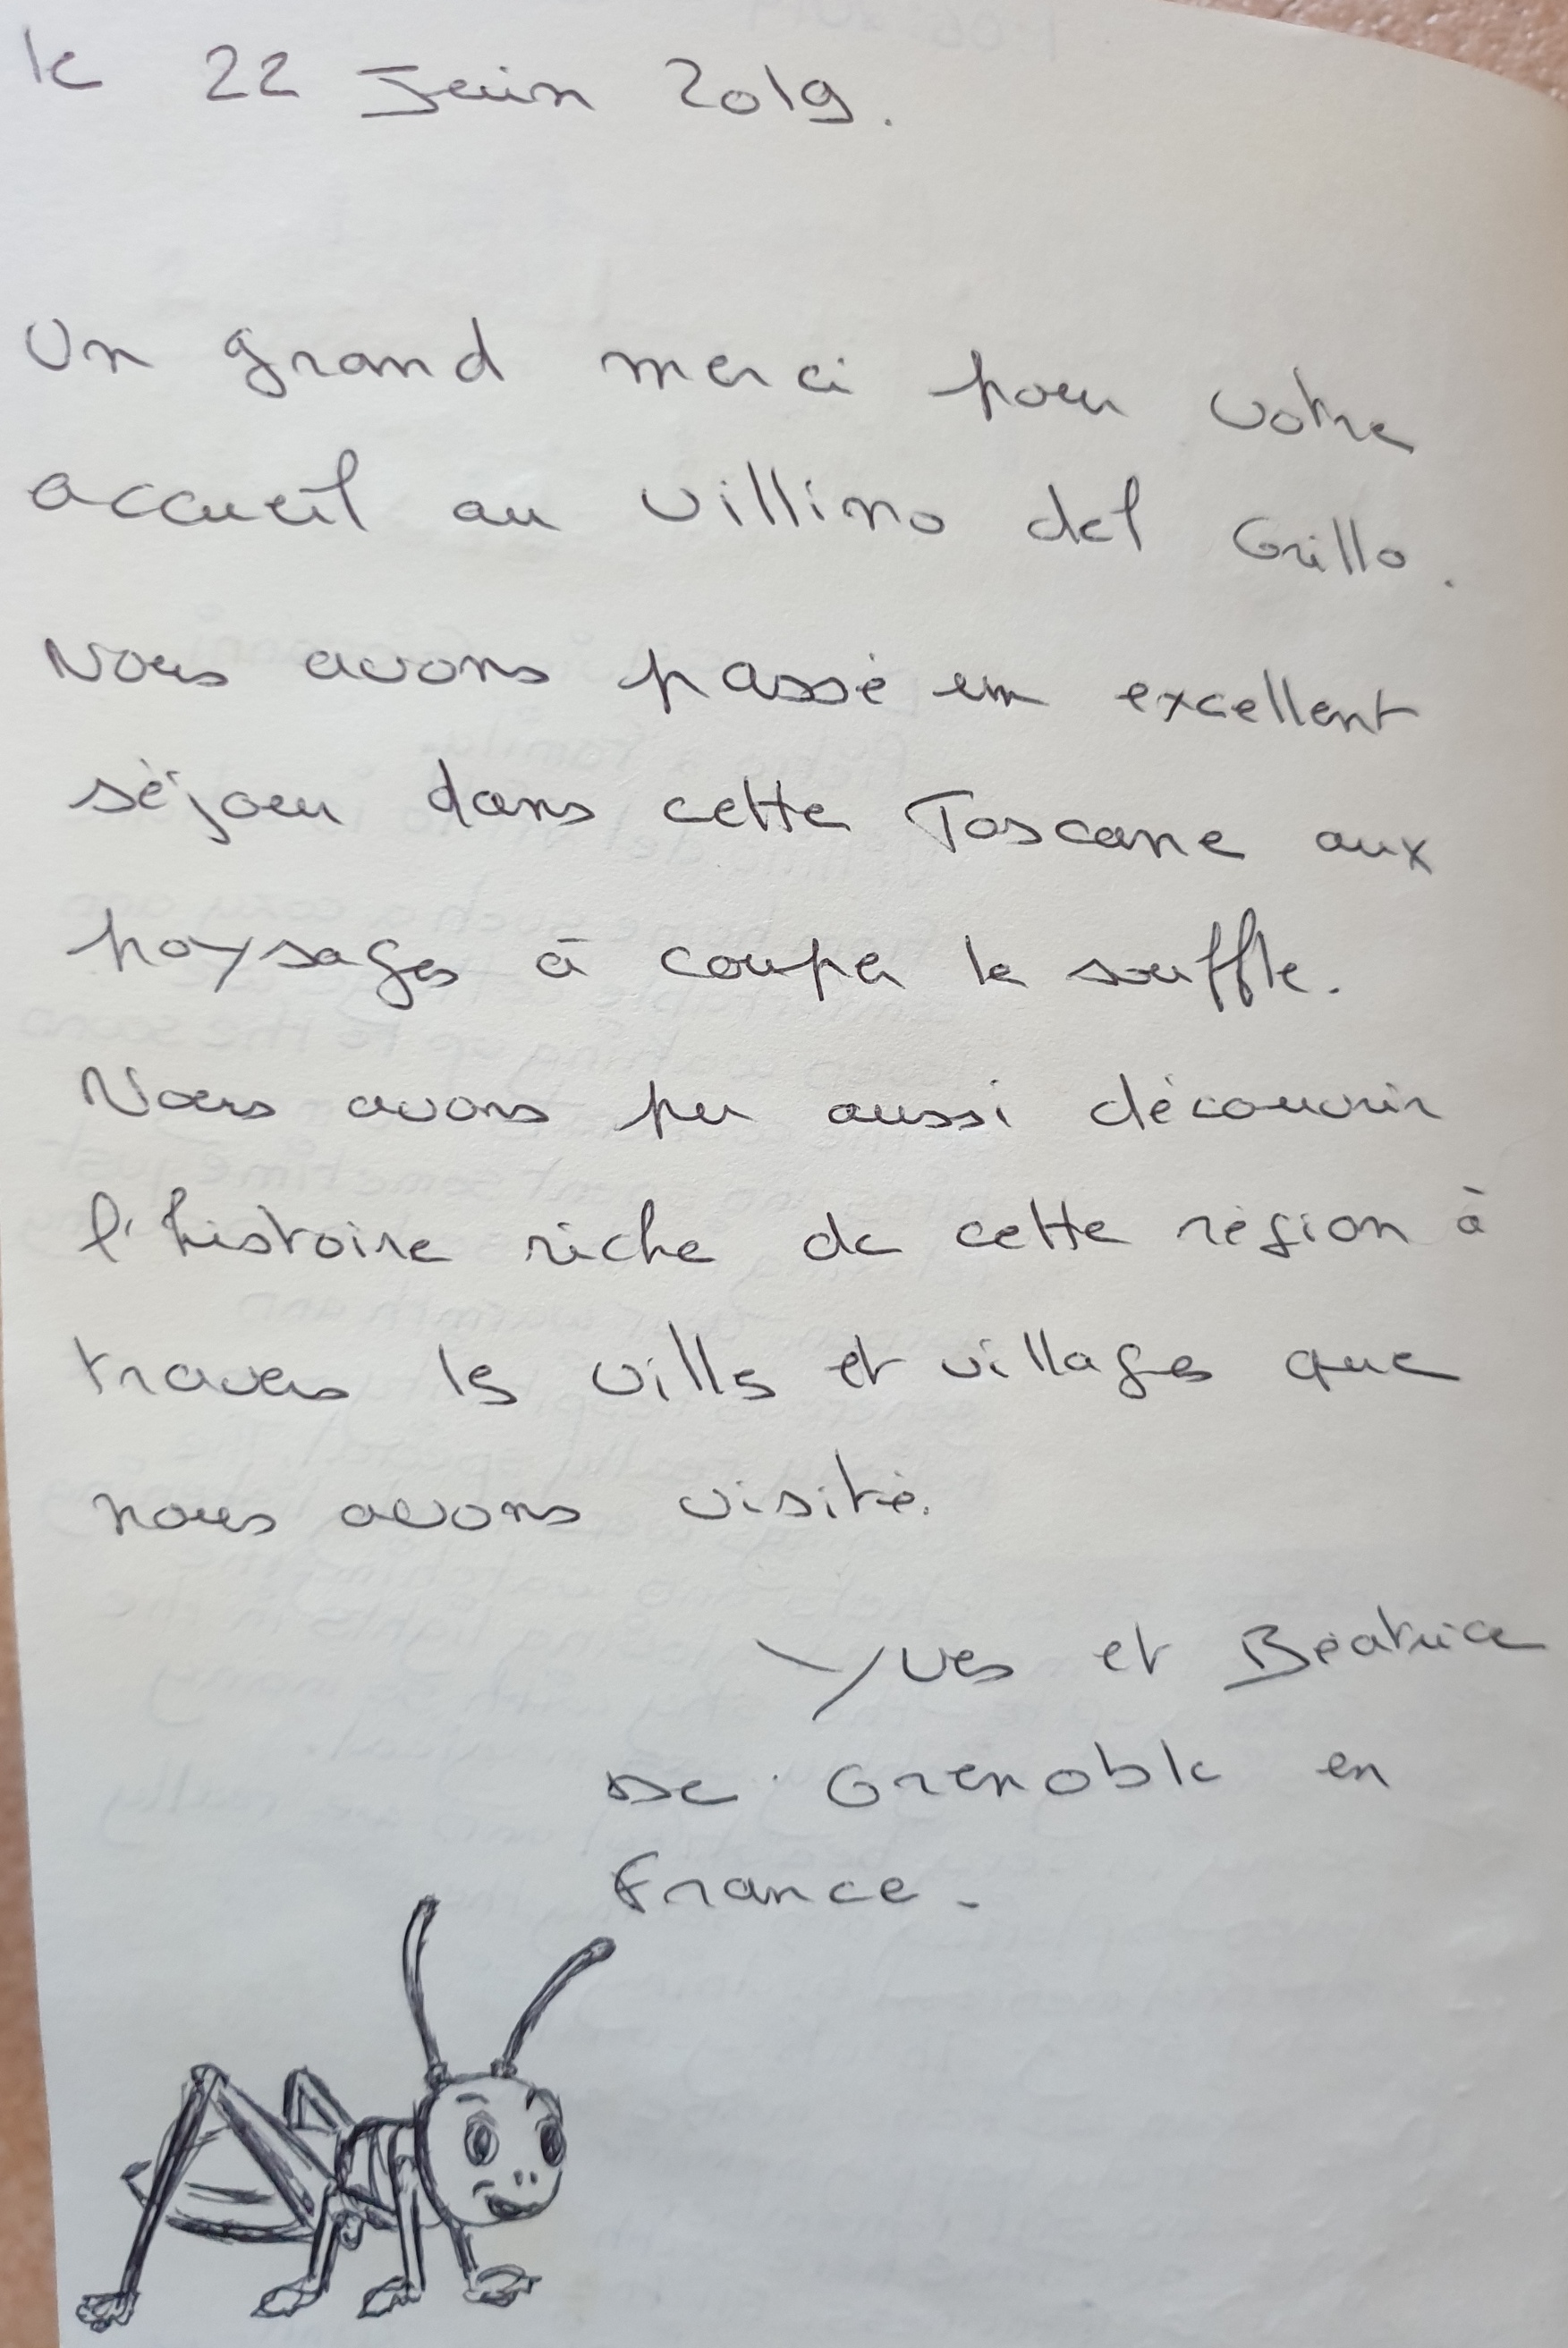 le 22 Juin 2019.
Un grand merci pour votre
accueil au Villino del Grillo.
Nous avons passé un excellent
séjour dans cette Toscane aux
paysages à couper le souffle.
Nous avons pu aussi découvrir
l'histoire riche de cette région à
travers les villes et villages que
nous avons visité.
Yves et Béatrice
De Grenoble en
France.